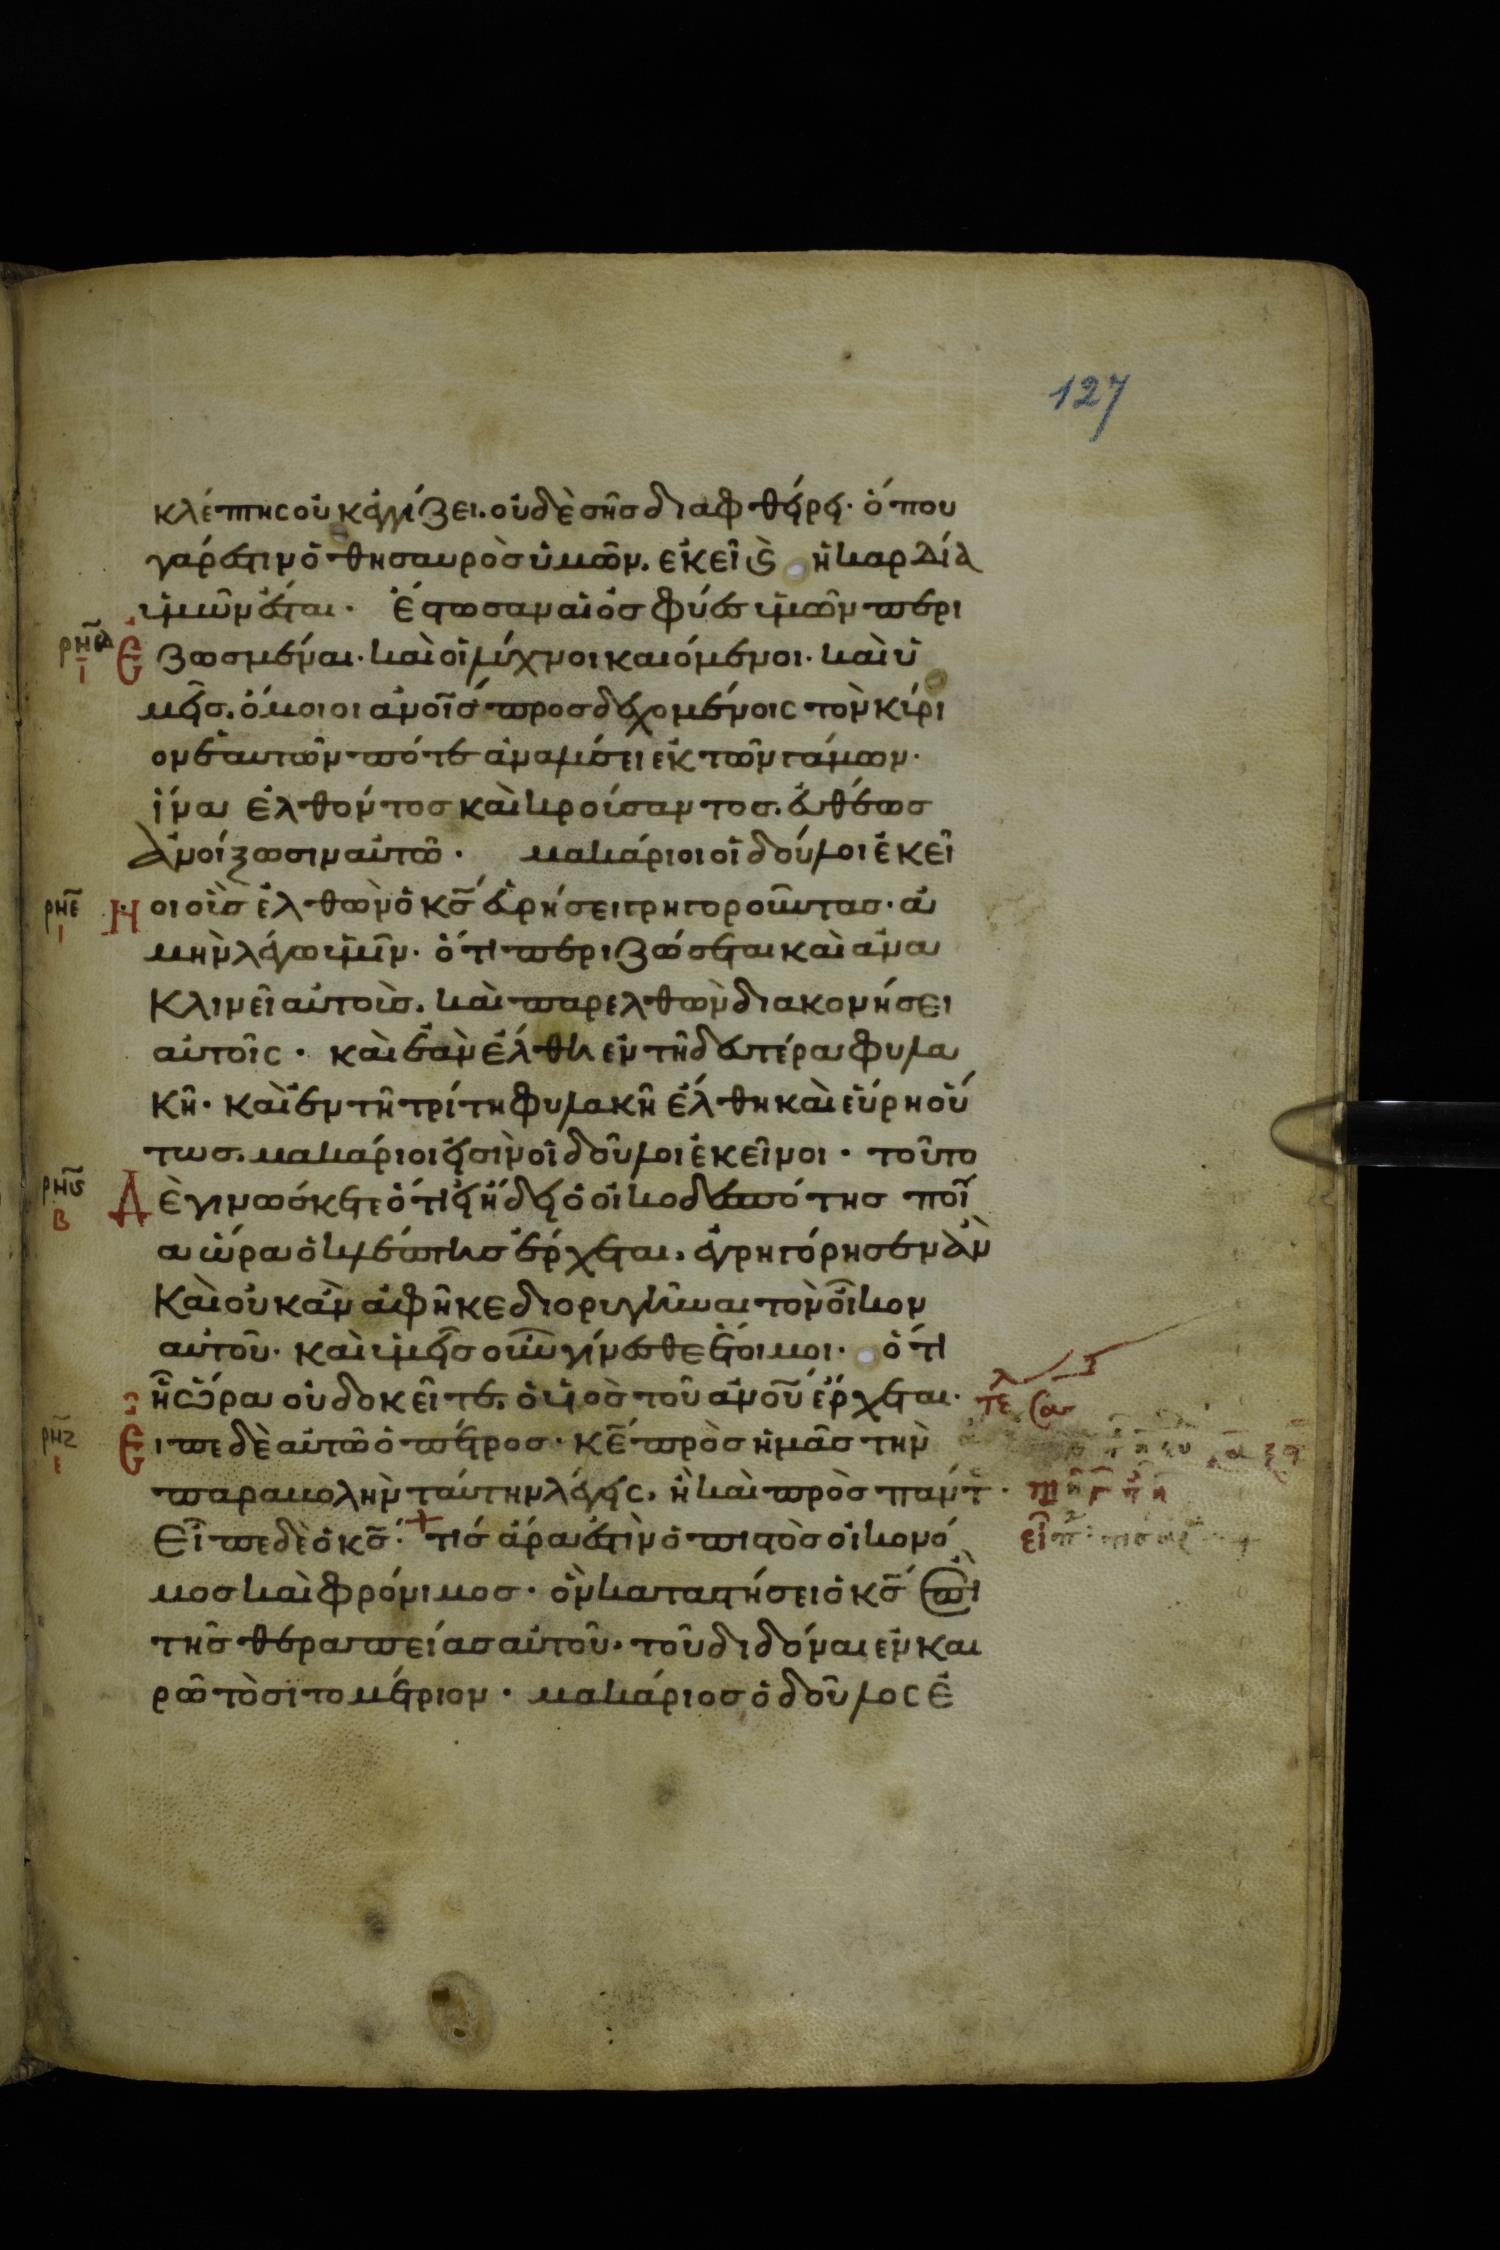 127
κλέπτης οὐκ ἐγγίζει. οὐδὲ σὴς διαφθείρει· ὅπου
γάρ ἐστιν ὁ θησαυρὸς ὑμῶν. ἐκεῖ ϗ ἡ καρδία
ὑμῶν ἔσται· Ἔστωσαν αἱ ὀσφύες ὑμῶν περι
ρπδ
ι
Ε ζωσμέναι· καὶ οἱ λύχνοι καιόμενοι· καὶ ὑ
μεῖς. ὅμοιοι ἀνοῖς προσδεχομένοις τὸν κύρι
ον ἑαυτῶν πότε ἀναλύσει ἐκ τῶν γάμων·
ἵνα ἐλθόντος καὶ κρούσαντος. εὐθέως
ἀνοίξωσιν αὐτῶ· μακάριοι οἱ δούλοι ἐκεῖ
ρπε
ι
Ν οι οὓς ἐλθὼν ὁ κς εὑρήσει γρηγοροῦντας· ἀ
μὴν λέγω ὑμῖν· ὅτι περιζώσεται καὶ ἀνα
κλινεῖ αὐτοὺς. καὶ παρελθὼν διακονήσει
αὐτοῖς· καὶ ἐὰν ἔλθη ἐν τῆ δευτέρα φυλα
κῆ· καὶ ἐν τῆ τρίτη φυλακῆ ἔλθη καὶ εὕρη οὕ
τως. μακάριοι εἰσὶν οἱ δοῦλοι ἐκεῖνοι· τοῦτο
ρπς
β
Δ ὲ γινώσκετε ὅτι εἰ ἤδει ὁ οἰκοδεσπότης ποί
α ὥρα ὁ κλέπτης ἔρχεται. ἐγρηγόρησεν ἂν
καὶ οὐκ ἂν ἀφῆκε διορυγῆναι τὸν οἶκον
αὐτοῦ· καὶ ὑμεῖς οὖν γίνεσθε ἕτοιμοι· ὅτι
ἧ ὥρα οὐ δοκεῖτε. ὁ υἱὸς τοῦ ἀνοῦ ἔρχεται·
τε σα
ρπζ
ε
Ε ἶπε δὲ αὐτῶ ὁ πέτρος· κε πρὸς ἡμᾶς τὴν
παραβολὴν ταύτην λέγεις. ἢ καὶ πρὸς παντ·
εἶπε δὲ ὁ κς· τίς ἄρα ἐστὶν ὁ πιστὸς οἰκονό
μος καὶ φρόνιμος· ὃν καταστήσει ὁ κς ἐπὶ
τῆς θεραπείας αὐτοῦ· τοῦ διδόναι ἐν και
ρῶ τὸ σιτομέτριον· μακάριος ὁ δοῦλος ἐ